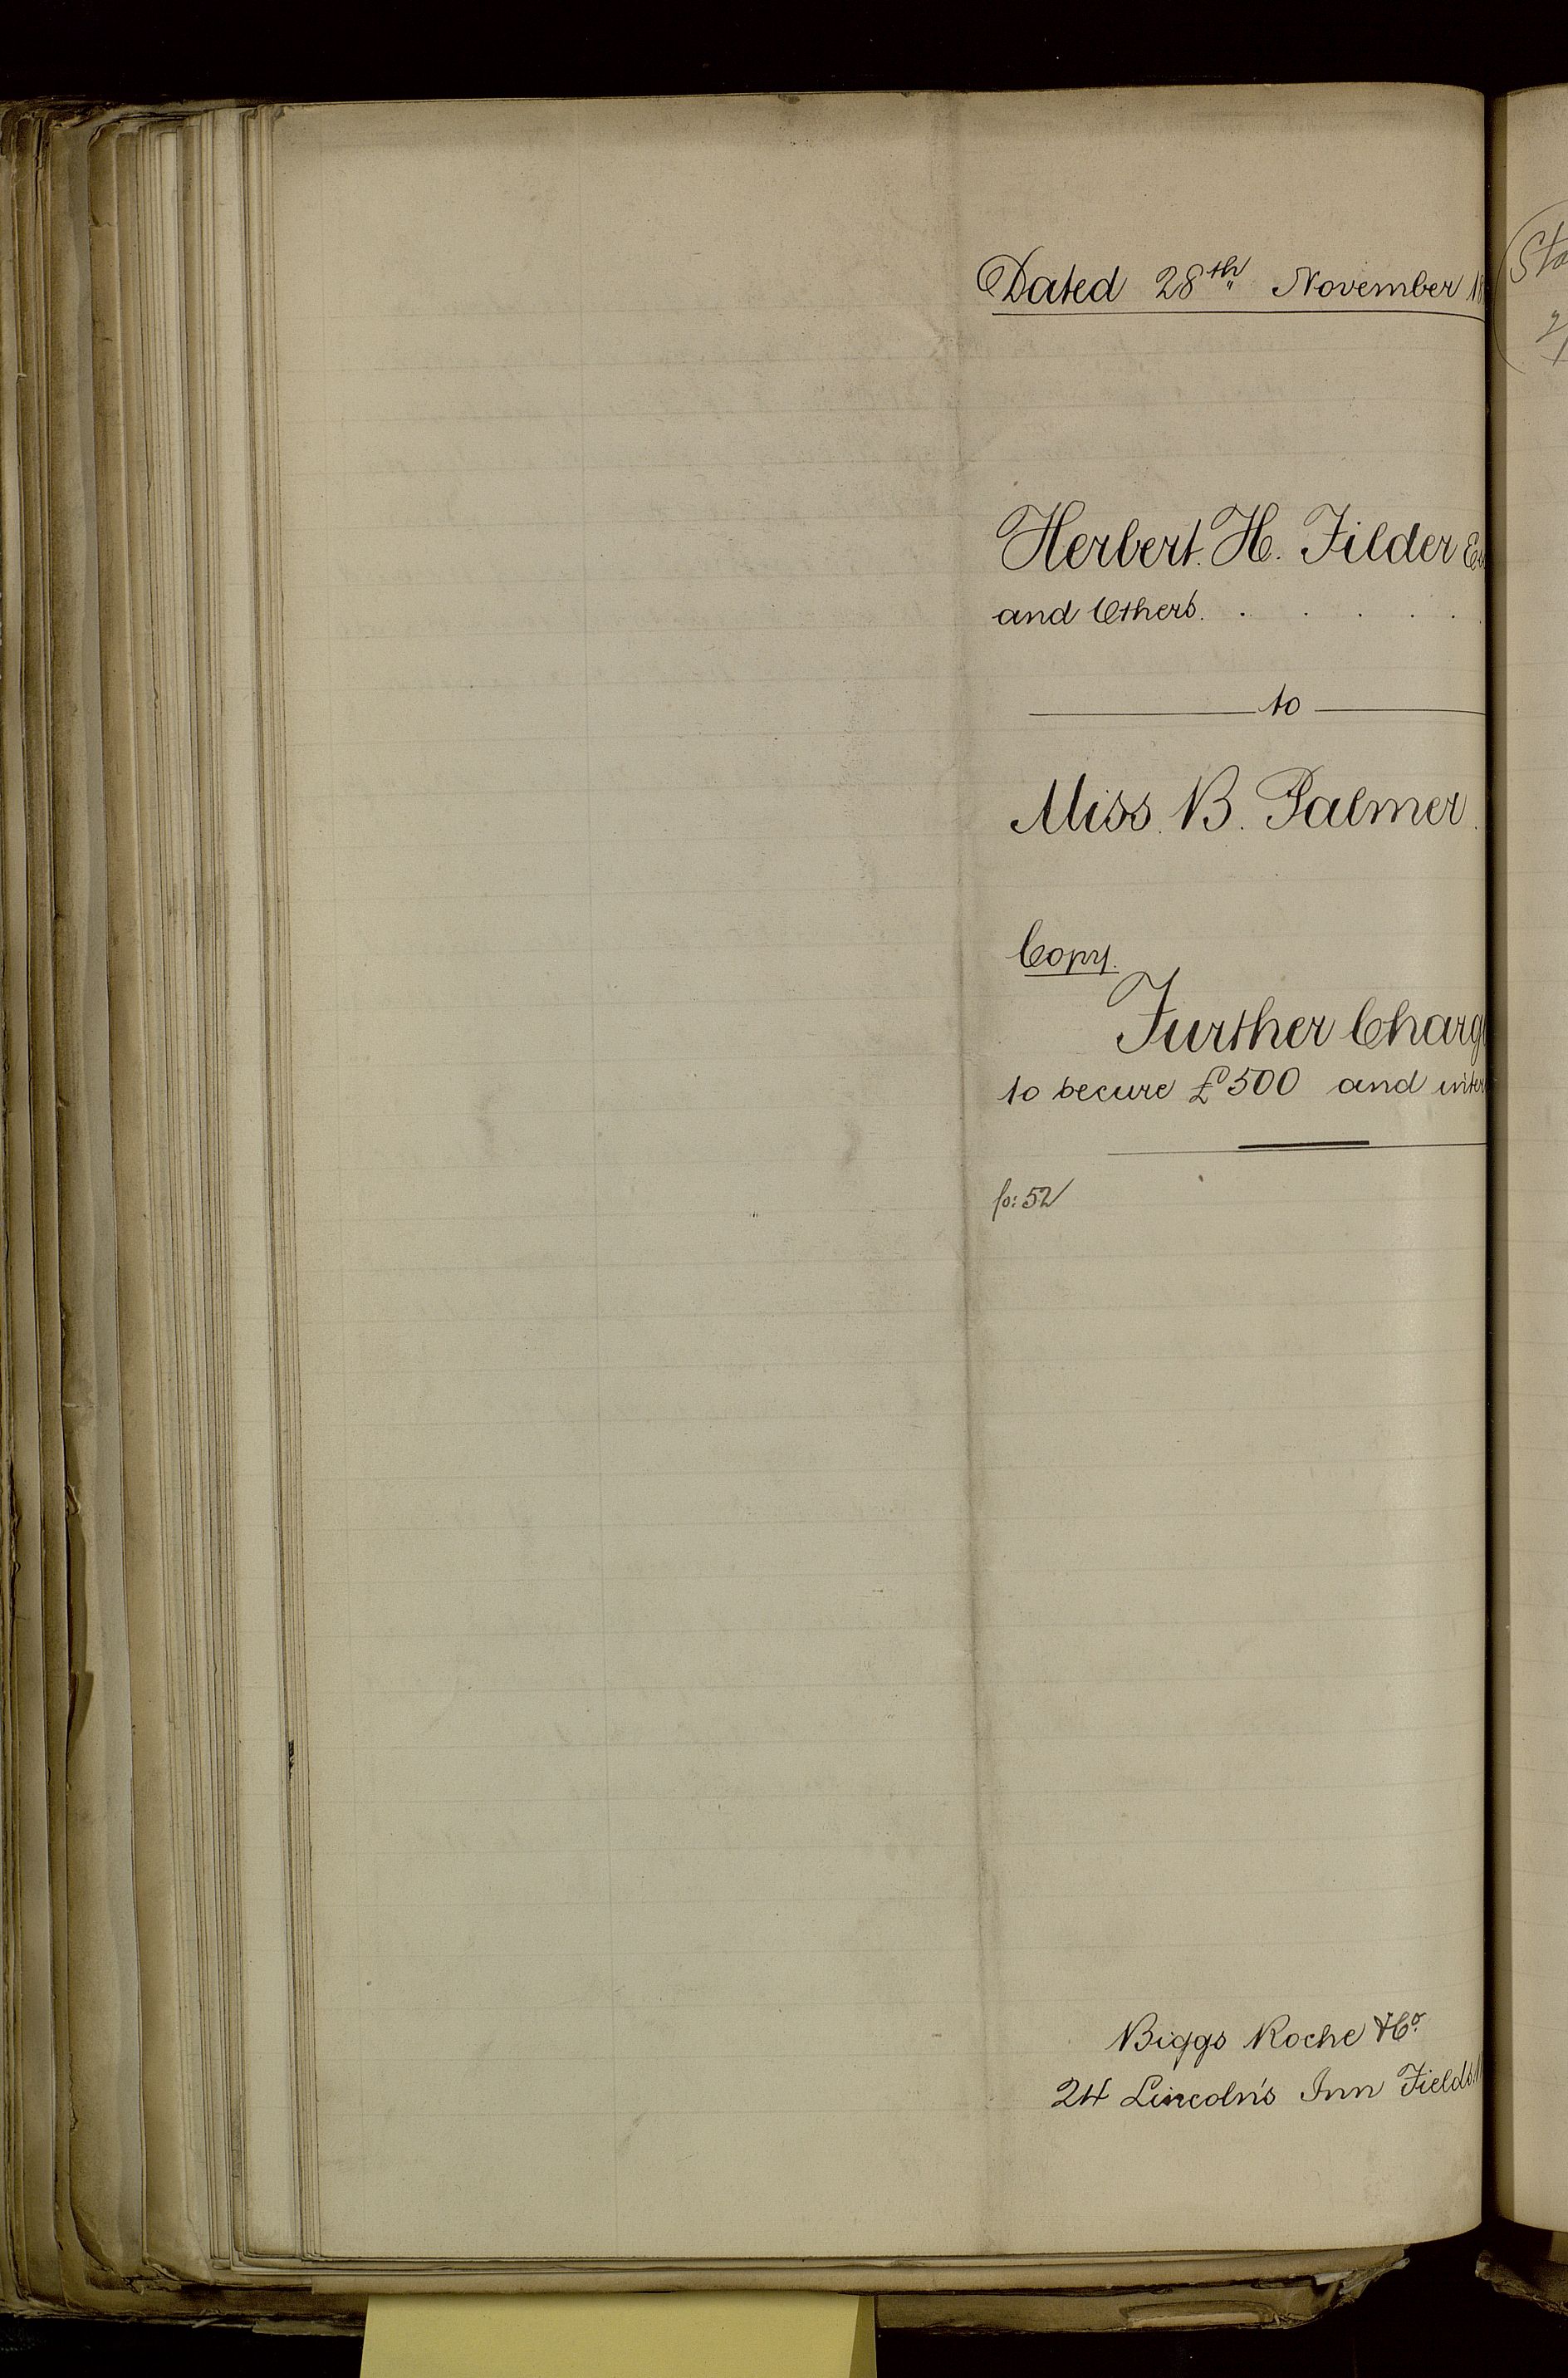 Dated 28th November 18
Herbert. H. Filder
and Others.
to
Miss. B. Palmer.
Copy.
Further Charge
to secure £500 and
fo: 52
Biggs Roche & Co.
24 Lincoln's Inn Fields.